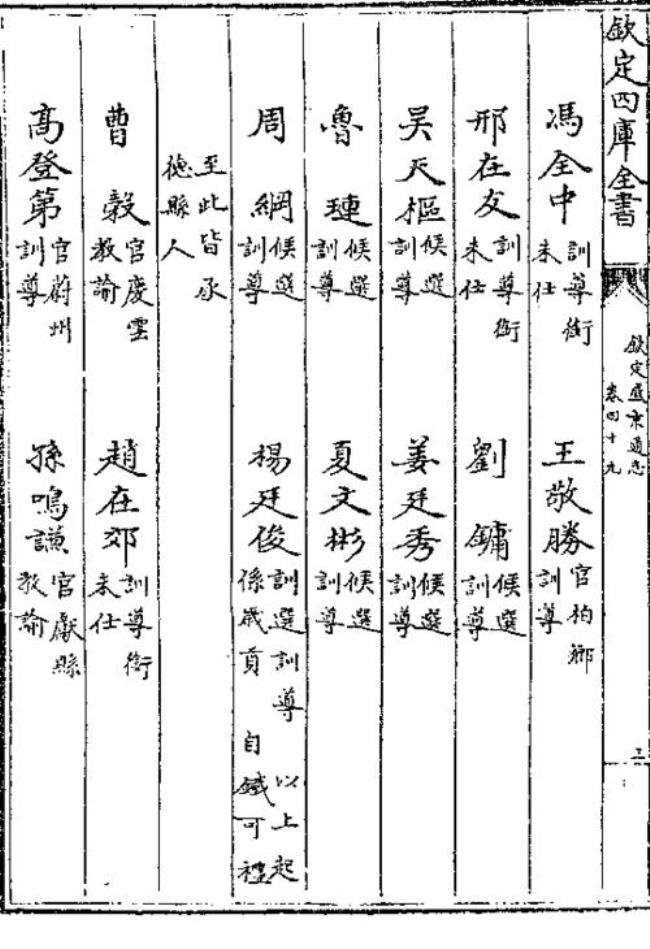 欽定四庫全書
欽定盛京通志
卷四十九
馮全中 訓導銜未仕 王敬勝 官柏鄉訓導
邢在友 訓導銜未仕 劉鏞 候選訓導
吴天樞 候選訓導 姜廷秀 候選訓導
魯璉 候選訓導 夏文彬 候選訓導
周綱 候選訓導 楊廷俊 訓選訓導係歲貢 以上起自鐵可禮
至此皆承德縣人
曹穀 官慶雲教諭 趙在郊 訓導銜未仕
高登第 官蔚州訓導 孫鳴謙 官獻縣教諭